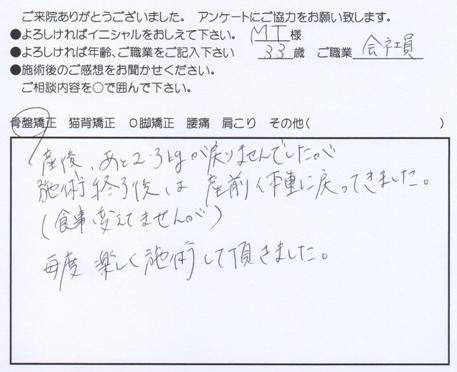 ご来院ありがとうございました。 アンケートにご協力をお願い致します。
●よろしければイニシャルをおしえて下さい。 MI 様
●よろしければ年齢、ご職業をご記入下さい 33 歳 ご職業 会社員
●施術後のご感想をお聞かせください。
ご相談内容を○で囲んで下さい。
骨盤矯正 猫背矯正 O脚矯正 腰痛 肩こり その他( )
産後、あと2.3kgが戻りませんでしたが
施術終了後は産前の体重に戻ってきました。
(食事、変えてませんが)
毎度楽しく施術して頂きました。